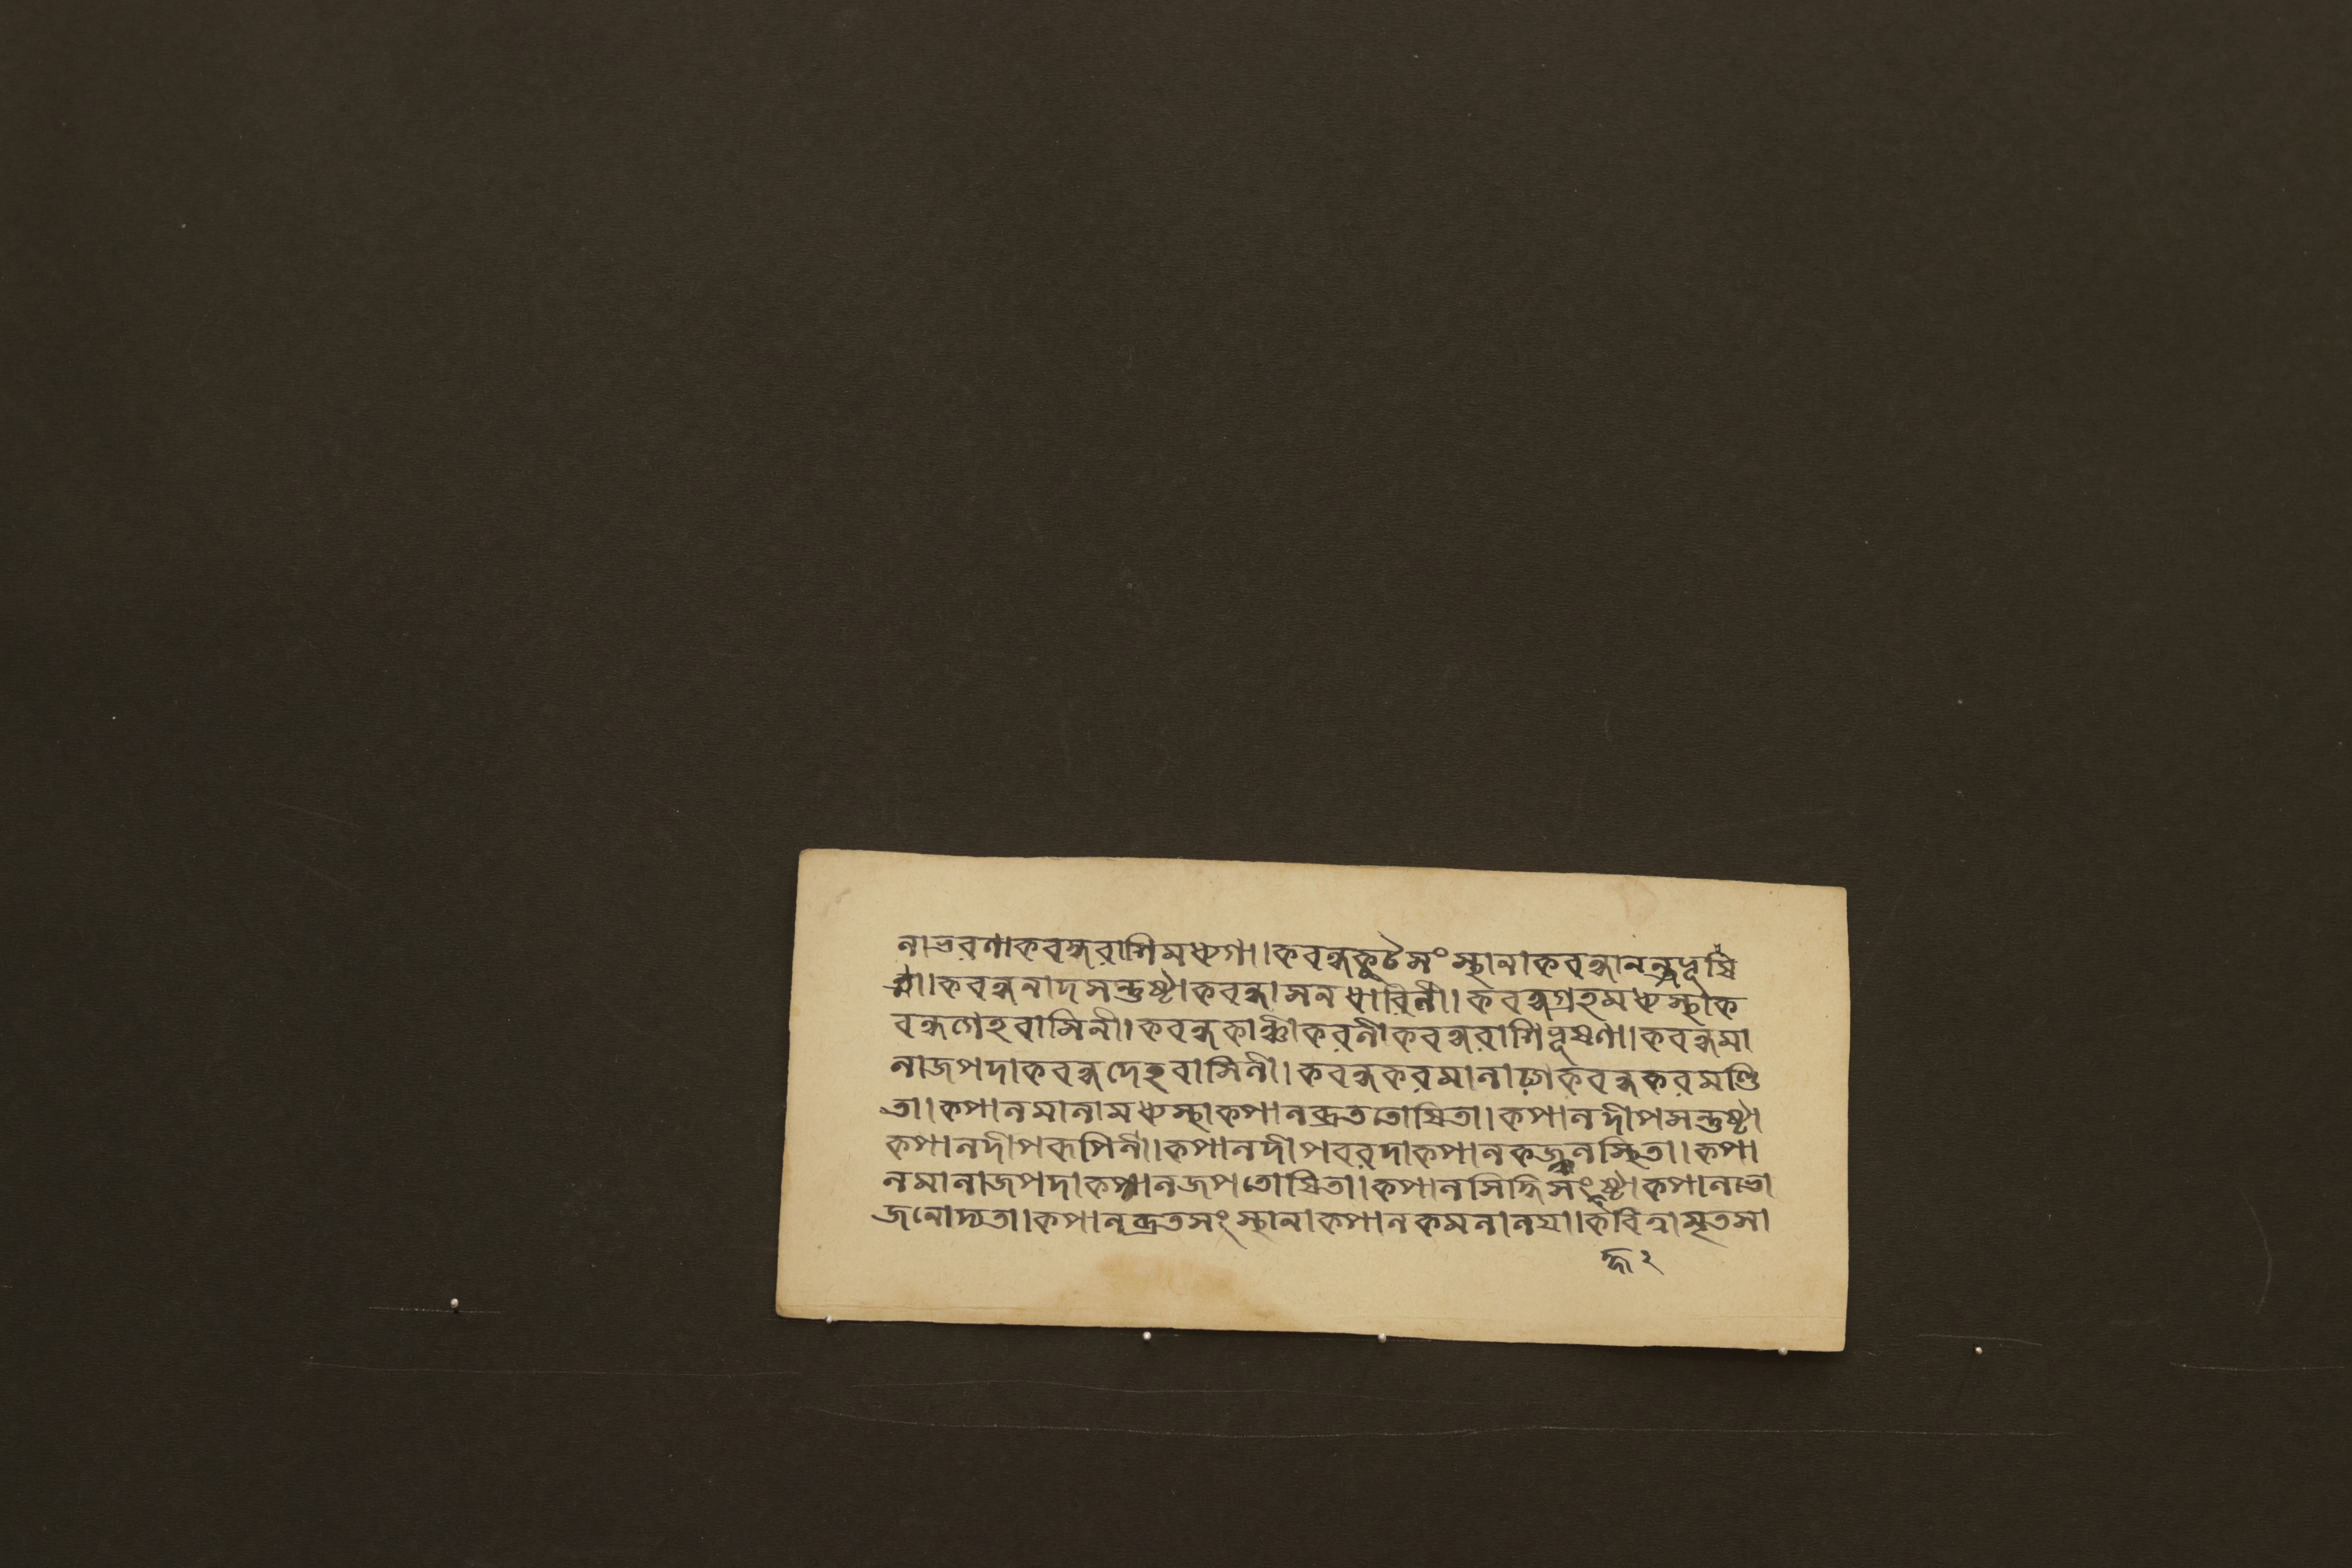 লাভরণাকবন্ধরাশিমধ্যগা।।কবন্ধকুটসংস্থানাকবন্ধানন্ত্রভূষি
তা।।কবন্ধনাদসন্তুষ্টাকবন্ধাসনধারিণী।।কবন্ধগ্রহমধ্যস্থাক
বন্ধগেহবাসিনী।।কবন্ধকাঞ্চীকরণীকবন্ধরাশিভূষণা।।কবন্ধমা
লাজপদাকবন্ধদেহবাসিনী।।কবন্ধকরমালাঢ্যাকবন্ধকরমণ্ডি
তা।।কপালমালামধ্যস্থাকপালব্রততোষিতা।।কপালদীপসন্তুষ্টা
কপালদীপরূপিণী।।কপালদীপবরদাকপালকজ্জলস্থিতা।।কপা
লমালাজপদাকপালজপতোষিতা।।কপালসিদ্ধিসংহৃষ্টাকপালভো
জনোদ্যতা।।কপালব্রতসংস্থানাকপালকমলালয়া।।কবিত্বামৃতসা